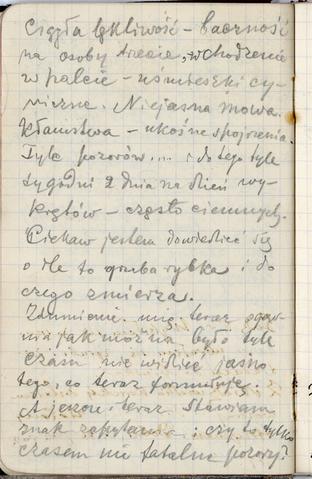 Ciągła lękliwość – baczność
na osoby trzecie, wchodzenie
w palcie – uśmieszki cy-
niczne. Niejasna mowa.
Kłamstwa – ukośne spojrzenia.
Tyle pozorów... i do tego tyle
tygodni z dnia na dzień wy-
krętów – często ciemnych.
Ciekaw jestem dowiedzieć się
o ile to gruba rybka i do
czego zmierza.
Zdumienie mię teraz ogar-
nia jak można było tyle
czasu nie widzieć jasno
tego, co teraz formułuję.
A jeszcze i teraz stawiam
znak zapytania: czy to tylko
czasem nie fatalne pozory?